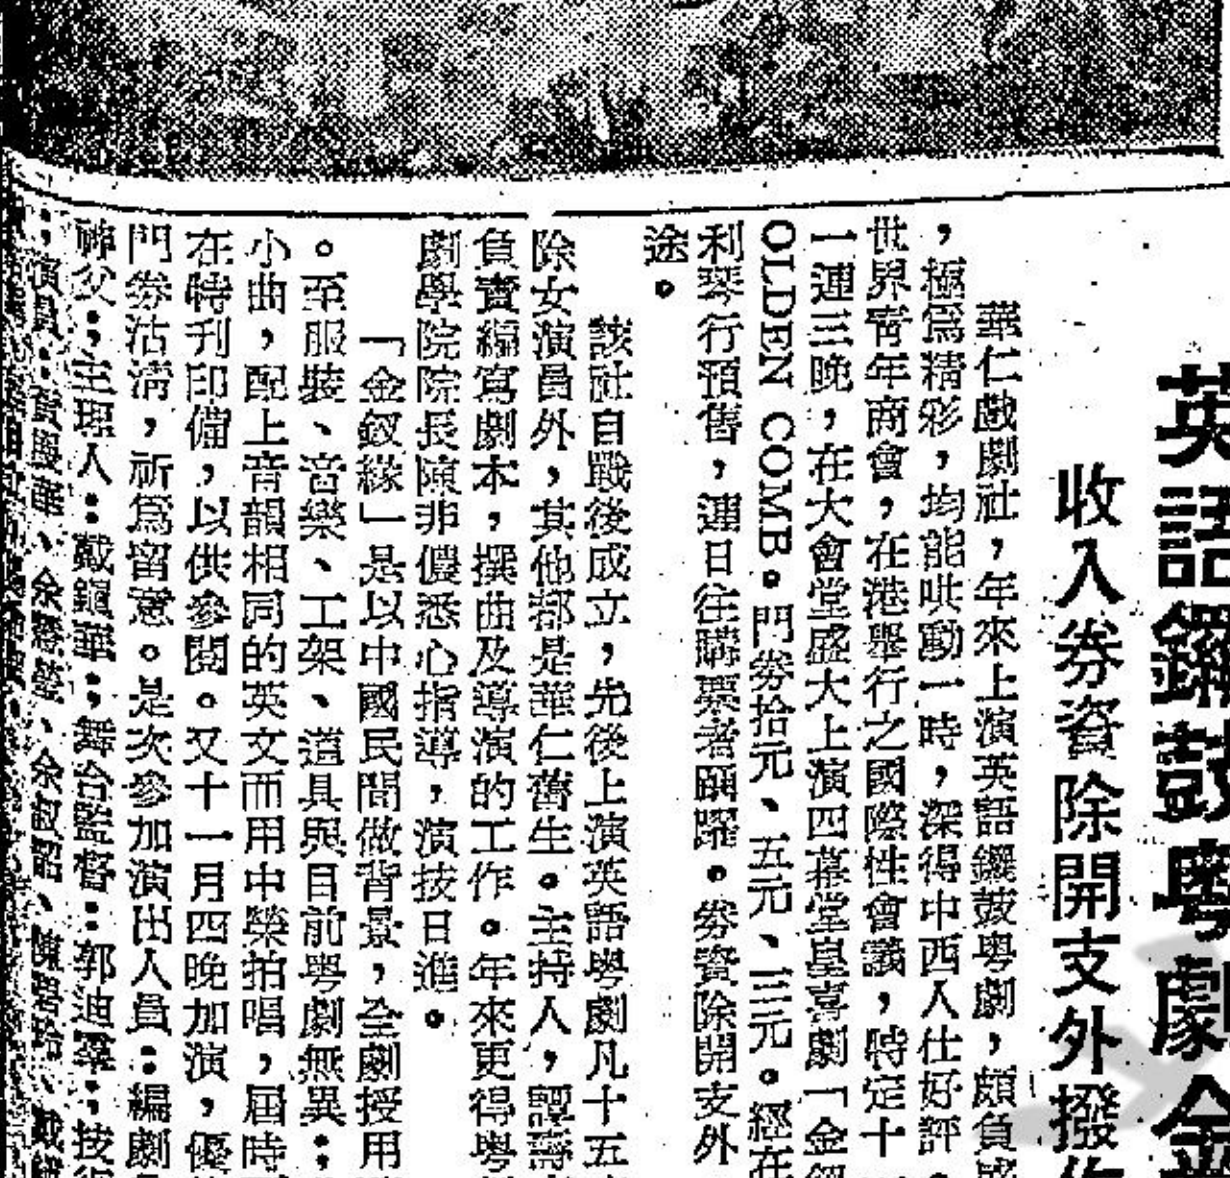 英語鑼鼓粵劇金
收入券資除開支外撥作
華仁戲劇社，年來上演英語鑼鼓粵劇，頗負盛
，極爲精彩，均能哄動一時，深得中西人仕好評。
世界青年商會，在港舉行之國際性會議，特定十
一連三晚，在大會堂盛大上演四幕堂皇喜劇「金釵
OLDEN COMB。門券拾元、五元、三元。經在
利琴行預售，連日往購票者踴躍。券資除開支外
途。
該社自戰後成立，先後上演英語粵劇凡十五
除女演員外，其他都是華仁舊生。主持人，譚壽
負責編寫劇本，撰曲及導演的工作。年來更得粵
劇學院院長陳非儂悉心指導，演技日進。
「金釵緣」是以中國民間做背景，全劇授用
。至服裝、音樂、工架、道具與目前粵劇無異：
小曲，配上音韻相同的英文而用中樂拍唱，屆時
在特刊印備，以供參閱。又十一月四晚加演，優
門券沽淸，祈爲留意。是次參加演出人員：編劇
神父；主理人：戴鎭華；舞台監督：郭迪羣；技術
；演員：黃興華、余叔韶、陳碧玲、戴